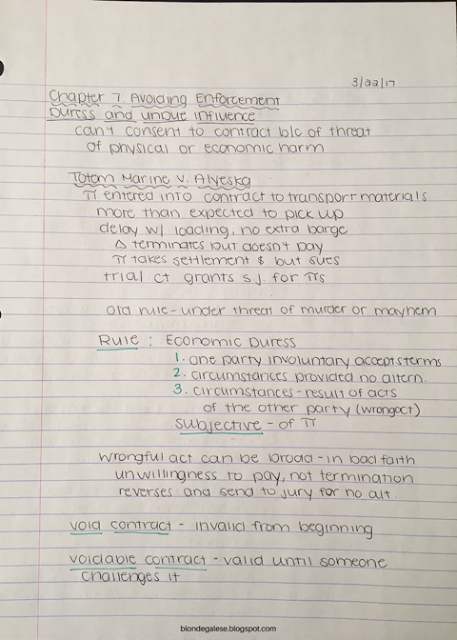 3/22/17
Chapter 7 Avoiding Enforcement
Duress and undue influence
can't consent to contract b/c of threat
of physical or economic harm
Totem Marine v. Alyeska
π entered into contract to transport materials
more than expected to pick up
delay w/ loading, no extra barge
Δ terminates but doesn't pay
π takes settlement $ but sues
trial ct grants s.j. for πs
old rule - under threat of murder or mayhem
Rule: Economic Duress
1. one party involuntary accepts terms
2. circumstances provided no altern.
3. circumstances - result of acts
of the other party (wrong act)
subjective - of π
wrongful act can be broad - in bad faith
unwillingness to pay, not termination
reverses and send to jury for no alt.
void contract - invalid from beginning
voidable contract - valid until someone
challenges it
blondegalese.blogspot.com